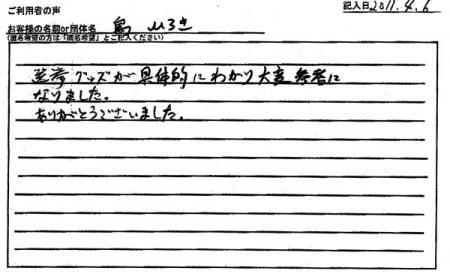 ご利用者の声
記入日 2011.4.6
お客様の名前or団体名 島 ひろき
(匿名希望の方は「匿名希望」とご記入ください)
グッズが具体的にわかり大変参考に
なりました。
ありがとうございました。